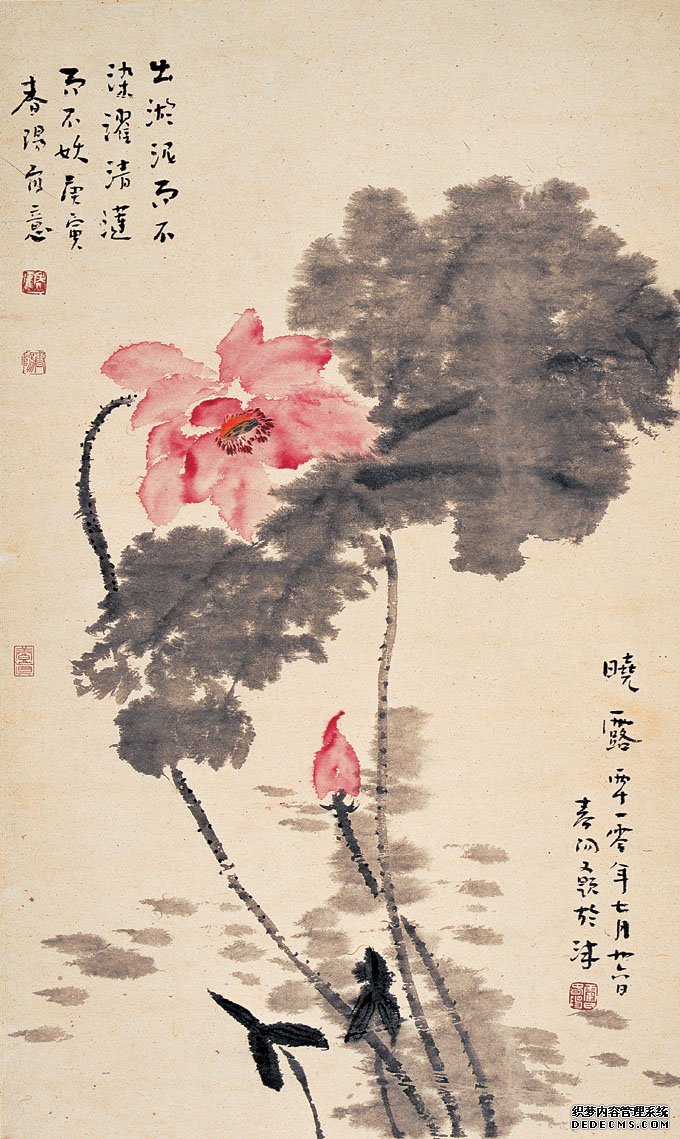 出淤泥而不
染濯清蓮
而不妖庚寅
春陽寫意
曉露
零年七月廿六日
春陽又題於
织梦内容管理系统
DEDECMS.COM